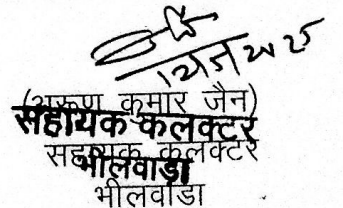 (अरूण कुमार जैन)
सहायक कलक्टर
सहायक कलक्टर
भीलवाड़ा
भीलवाडा